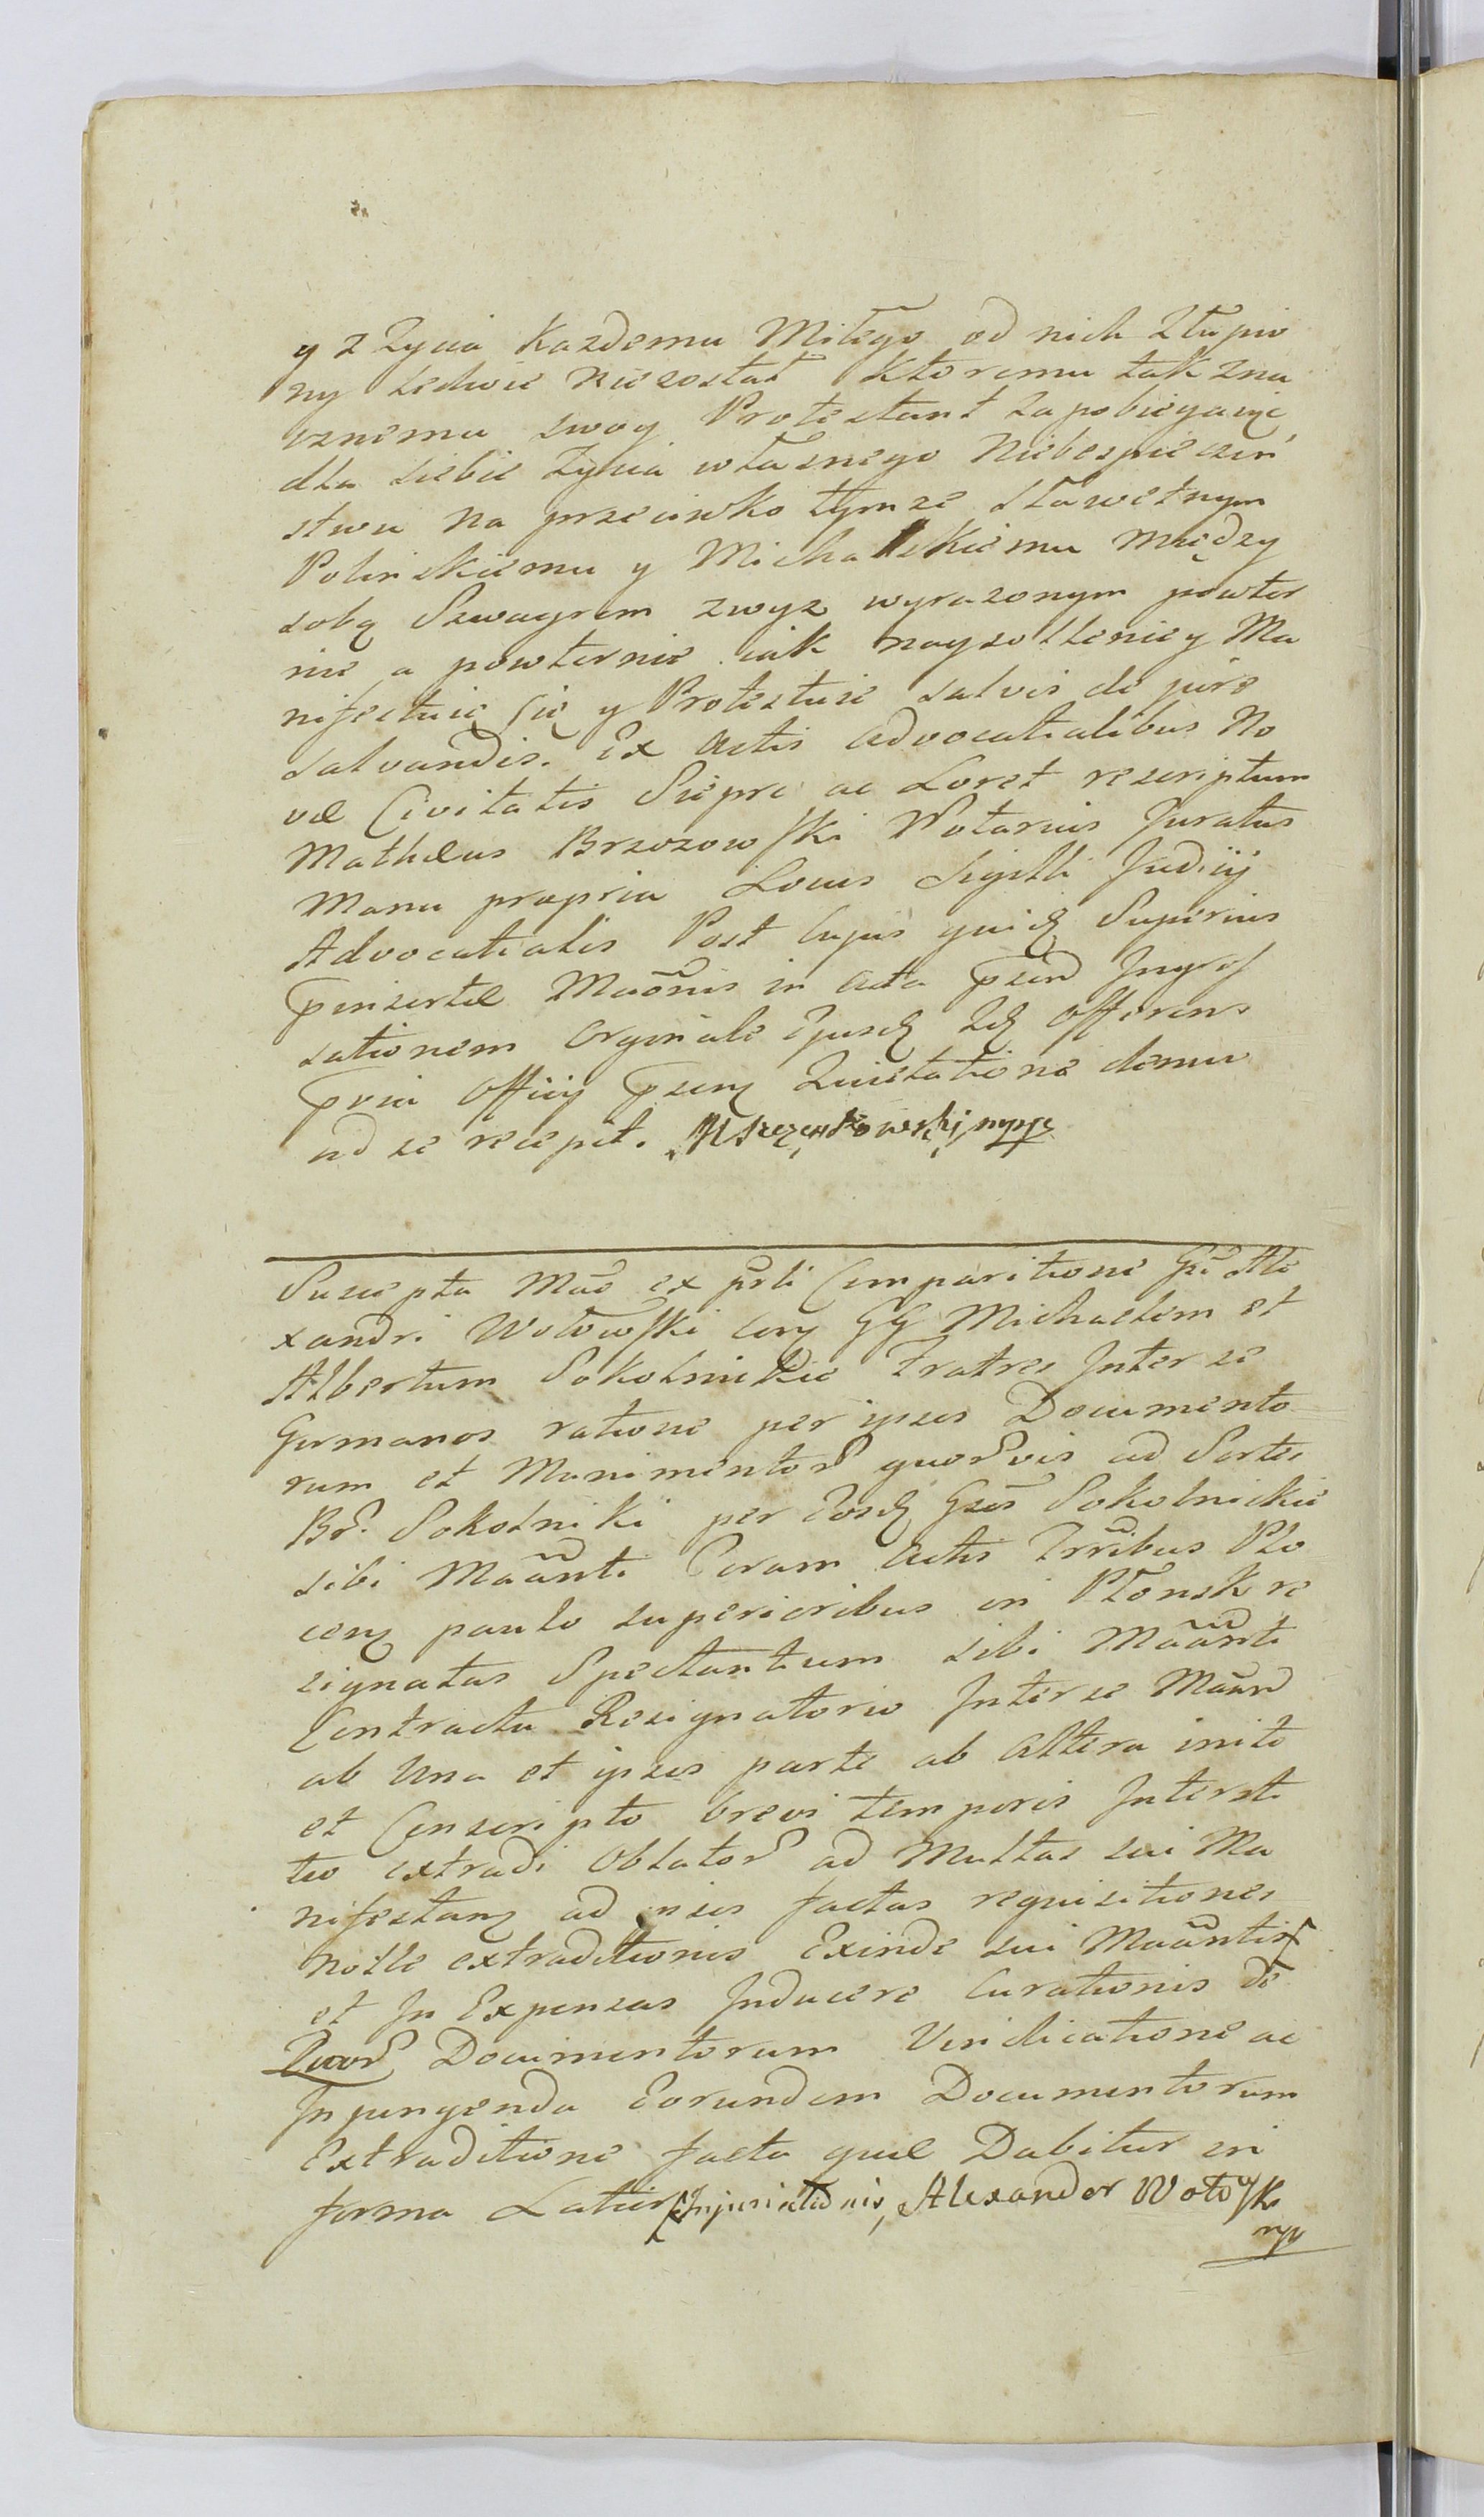 y z Zycia Kazdemu Miłego od nich Złupio
ny Ledwie nie został Ktoremu tak zna
cznemu swoy Protestant Zapobiegaiąc
dla siebie Zycia własnego Niebespieczeń
stwu na przeciwko tymze Sławetnym
Polinskiemu y Michalskiemu między
sobą Szwagrom zwyz wyrazonym powtor
nie a powtornie iak nayzolleniey Ma
nifestuie się y Protestuie salvis de jure
salvandis. Ex Actis Advocatialibus No
væ Civitatis Sieprc ac Loret rescriptum
Mathæus Brzozowski Notarius Juratus
Manu propria Locus Sigilli Judicij
Advocatialis Post cujus quidem Superius
insertæ Maõnis in Acta pṡen Ingros
sationem Orginale Ejusdem Idem Offerens
Officij Quietatione denuo
ad se recepit. Szczepkowski mpp

Suscepta Maõ ex Comparitione Gsi Ale
xandri Wołowski GG Michaelem et
Albertum Sokolnickie Fratres Inter se
Germanos ratione per ipsos Documento
rum et Munimentor quorvis ad Sortes
Br. Sokolniki per Eosdem Gsos Sokolnickie
sibi Maãnti Coram Actis Trribus Plo
cen paulo superioribus in Płonsk re
signatas Spectantium sibi Maãnti
Contractu Resignatorio Inter se Maãn
ab Una et ipsos parte ab Altera inito
et Conscripto brevi temporis Intersti
tio extradi Oblator ad Multas sui Ma
nifestan ad eos factas requisitiones
nolle extraditionis Exinde sui Maãntis
et In Expensas Inducere Curationis de
Documentorum Vindicatione ac
Injungenda Eorundem Documentorum
Extraditione facta quæ Dabitur in
forma Latiori Injuriationis, Alexander Wołowski
mp